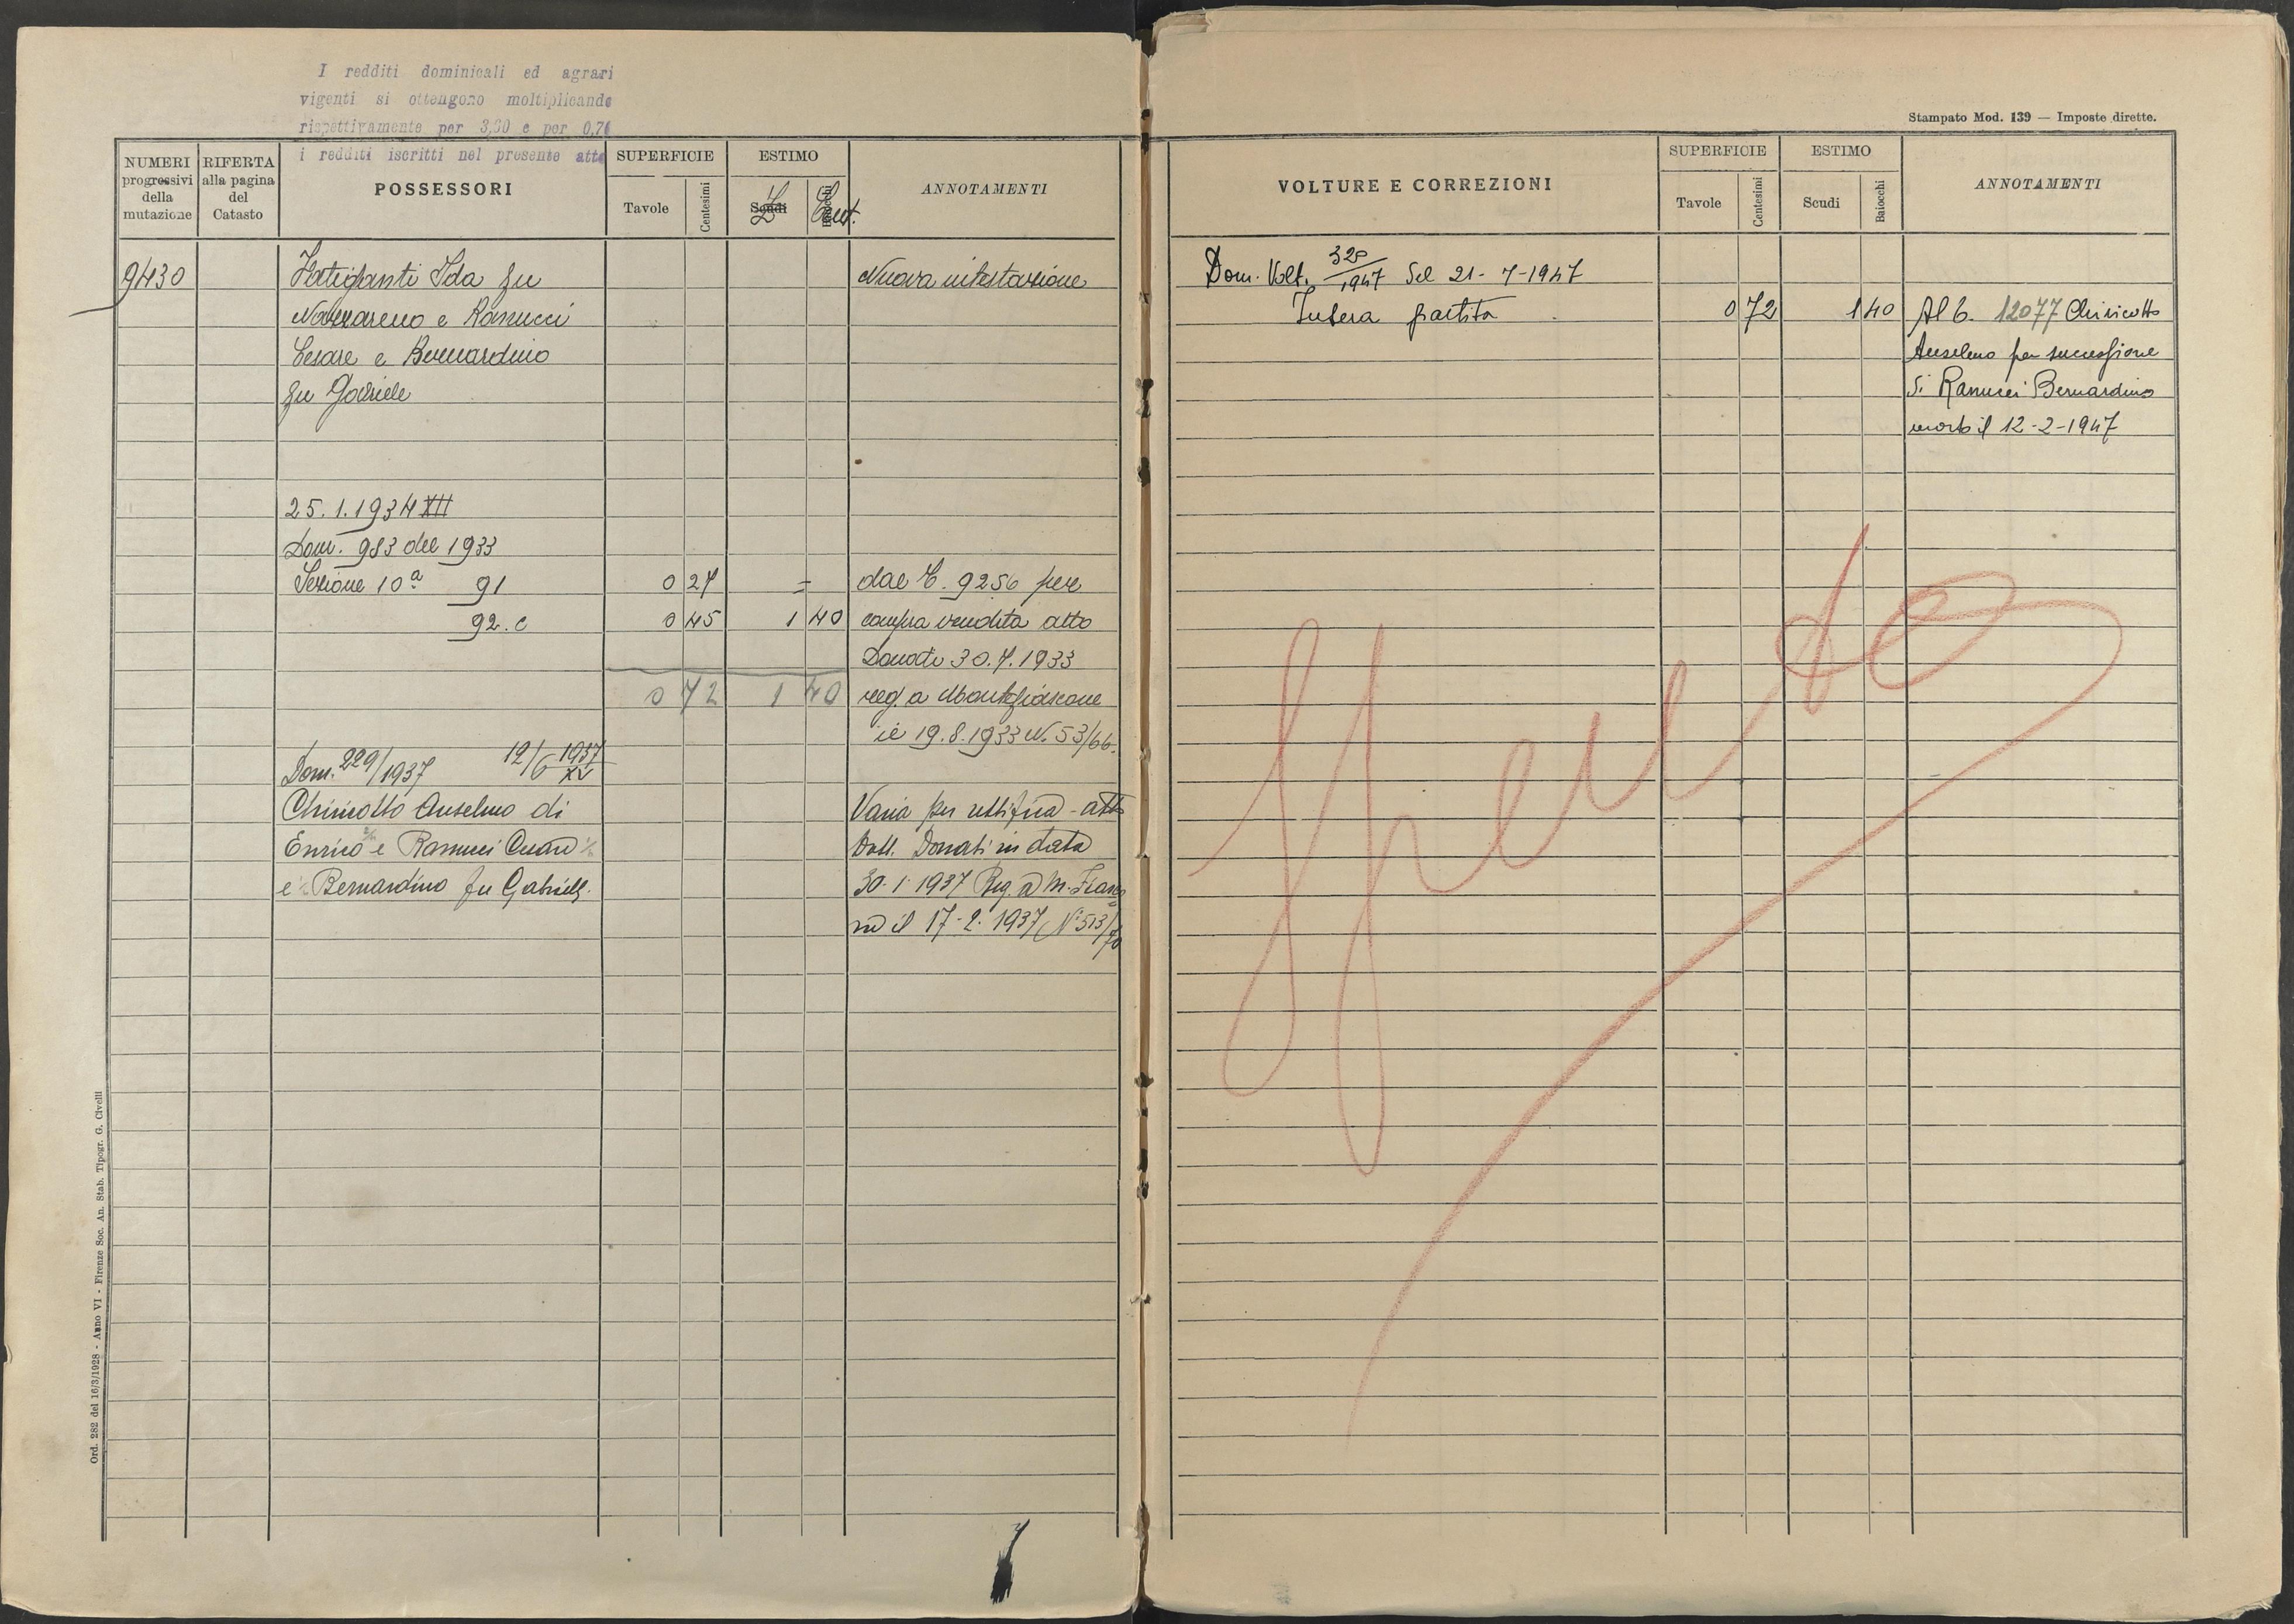 I redditi dominicali ed agrari
vigenti si ottengono moltiplicando
rispettivamente per 3,60 e per 0,70
i redditi iscritti nel presente atto
NUMERI progressivi della mutazione
RIFERTA alla pagina del Catasto
POSSESSORI
SUPERFICIE
Tavole
Centesimi
ESTIMO
Scudi
L
Cent.
ANNOTAMENTI
9430 Fatiganti Ida fu Nuova intestazione
Nazzareno e Ranucci
Cesare e Bernardino
fu Gabriele
25.1.1934 XII
Dom. 983 del 1933
Sezione 10ª 91 0 27 = dal C. 9256 per
92.c 0 45 1 40 compra vendita atto
Donati 30.7.1933
0 72 1 40 reg. a Montefiascone
il 19.8.1933 N. 53/66.
Dom. 229/1937 12/6 1937 XV
Chiricotto Anselmo di Varia per rettifica - atto
Enrico e Ranucci Dott. Donati in data
e Bernardino fu Gabriele. 30-1-1937 Reg. a M. Fiasco
il 17-2-1937 N° 513/70
Ord. 282 del 16/3/1928 - Anno VI - Firenze Soc. An. Stab. Tipogr. G. Civelli
Stampato Mod. 139 — Imposte dirette.
VOLTURE E CORREZIONI
SUPERFICIE
Tavole
Centesimi
ESTIMO
Scudi
Baiocchi
ANNOTAMENTI
Dom. Volt. 320/1947 del 21-7-1947
Intera partita 0 72 1 40 Al C. 12077 Chiricotto
Anselmo per successione
di Ranucci Bernardino
morto il 12-2-1947
Spento